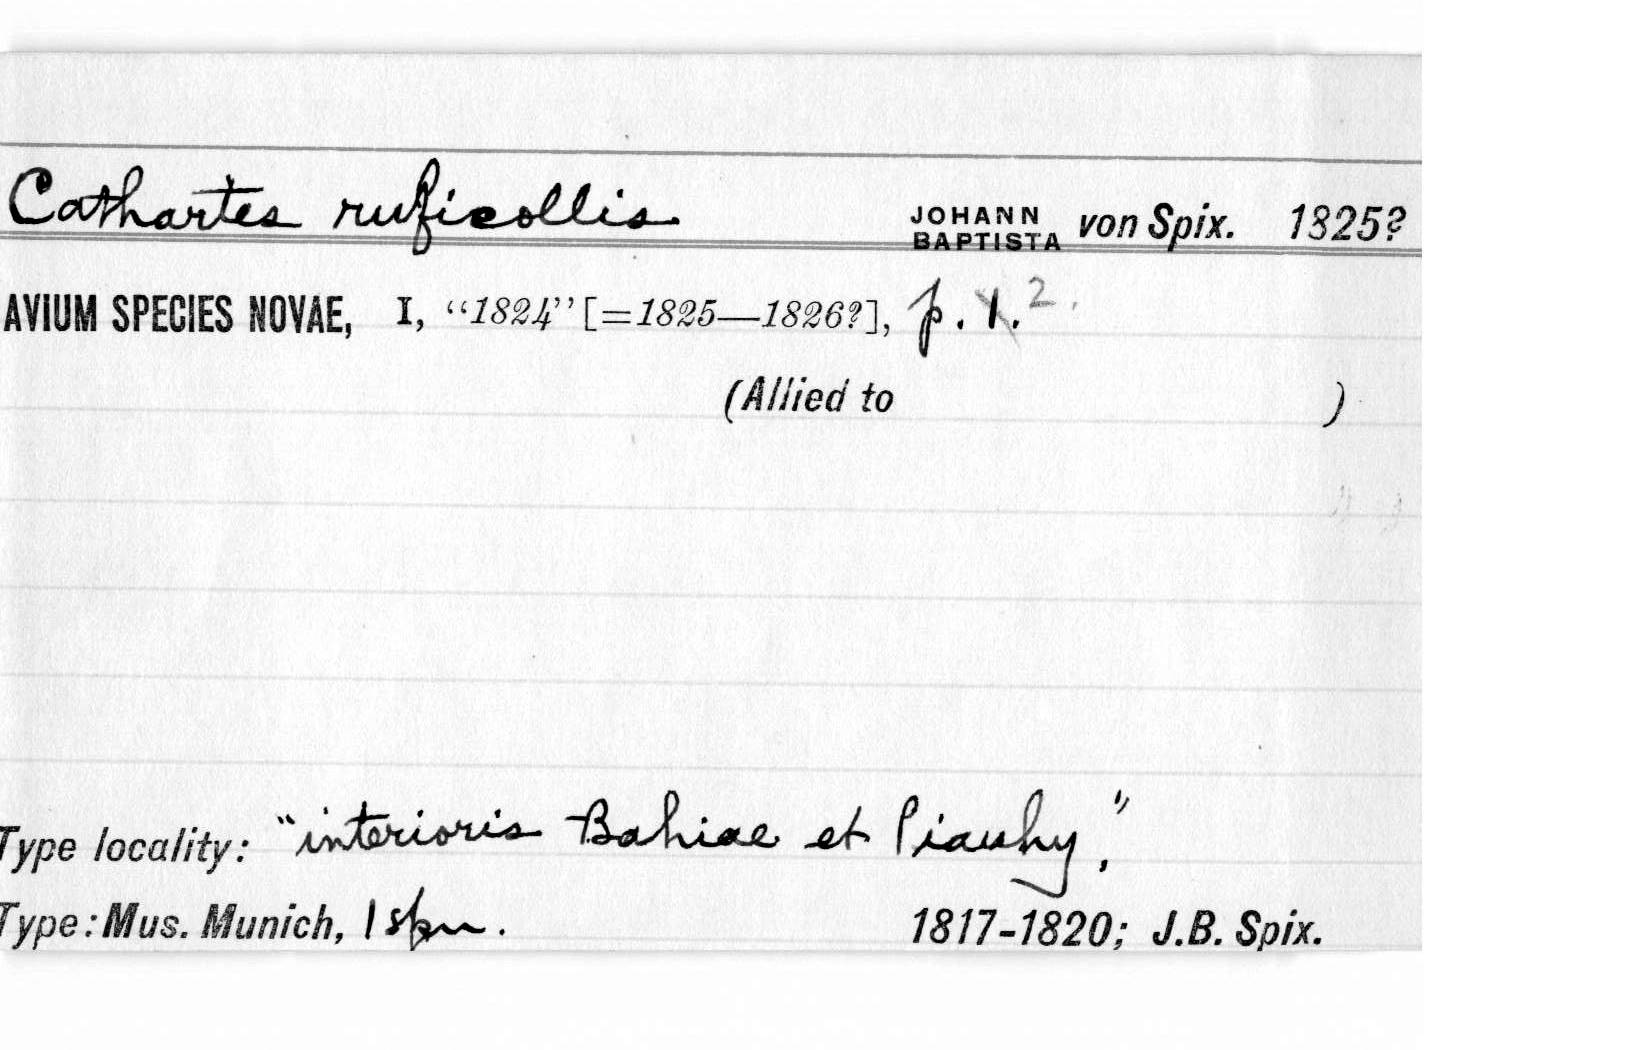 Cathartes ruficollis JOHANN BAPTISTA von Spix. 1825?
AVIUM SPECIES NOVAE, I, “1824” [=1825—1826?], p. 1. 2.
(Allied to )
Type locality: "interioris Bahiae et Piauhy,"
Type: Mus. Munich, 1 spm. 1817-1820; J.B. Spix.